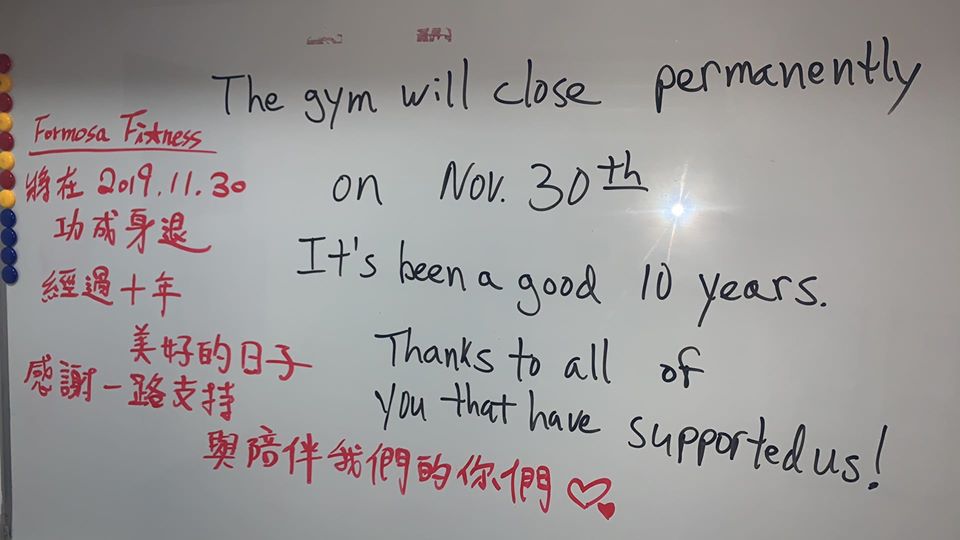 The gym will close permanently
on Nov. 30th
It's been a good 10 years.
Thanks to all of
you that have supported us!
Formosa Fitness
將在 2019.11.30
功成身退
經過十年
美好的日子
感謝一路支持
與陪伴我們的你們